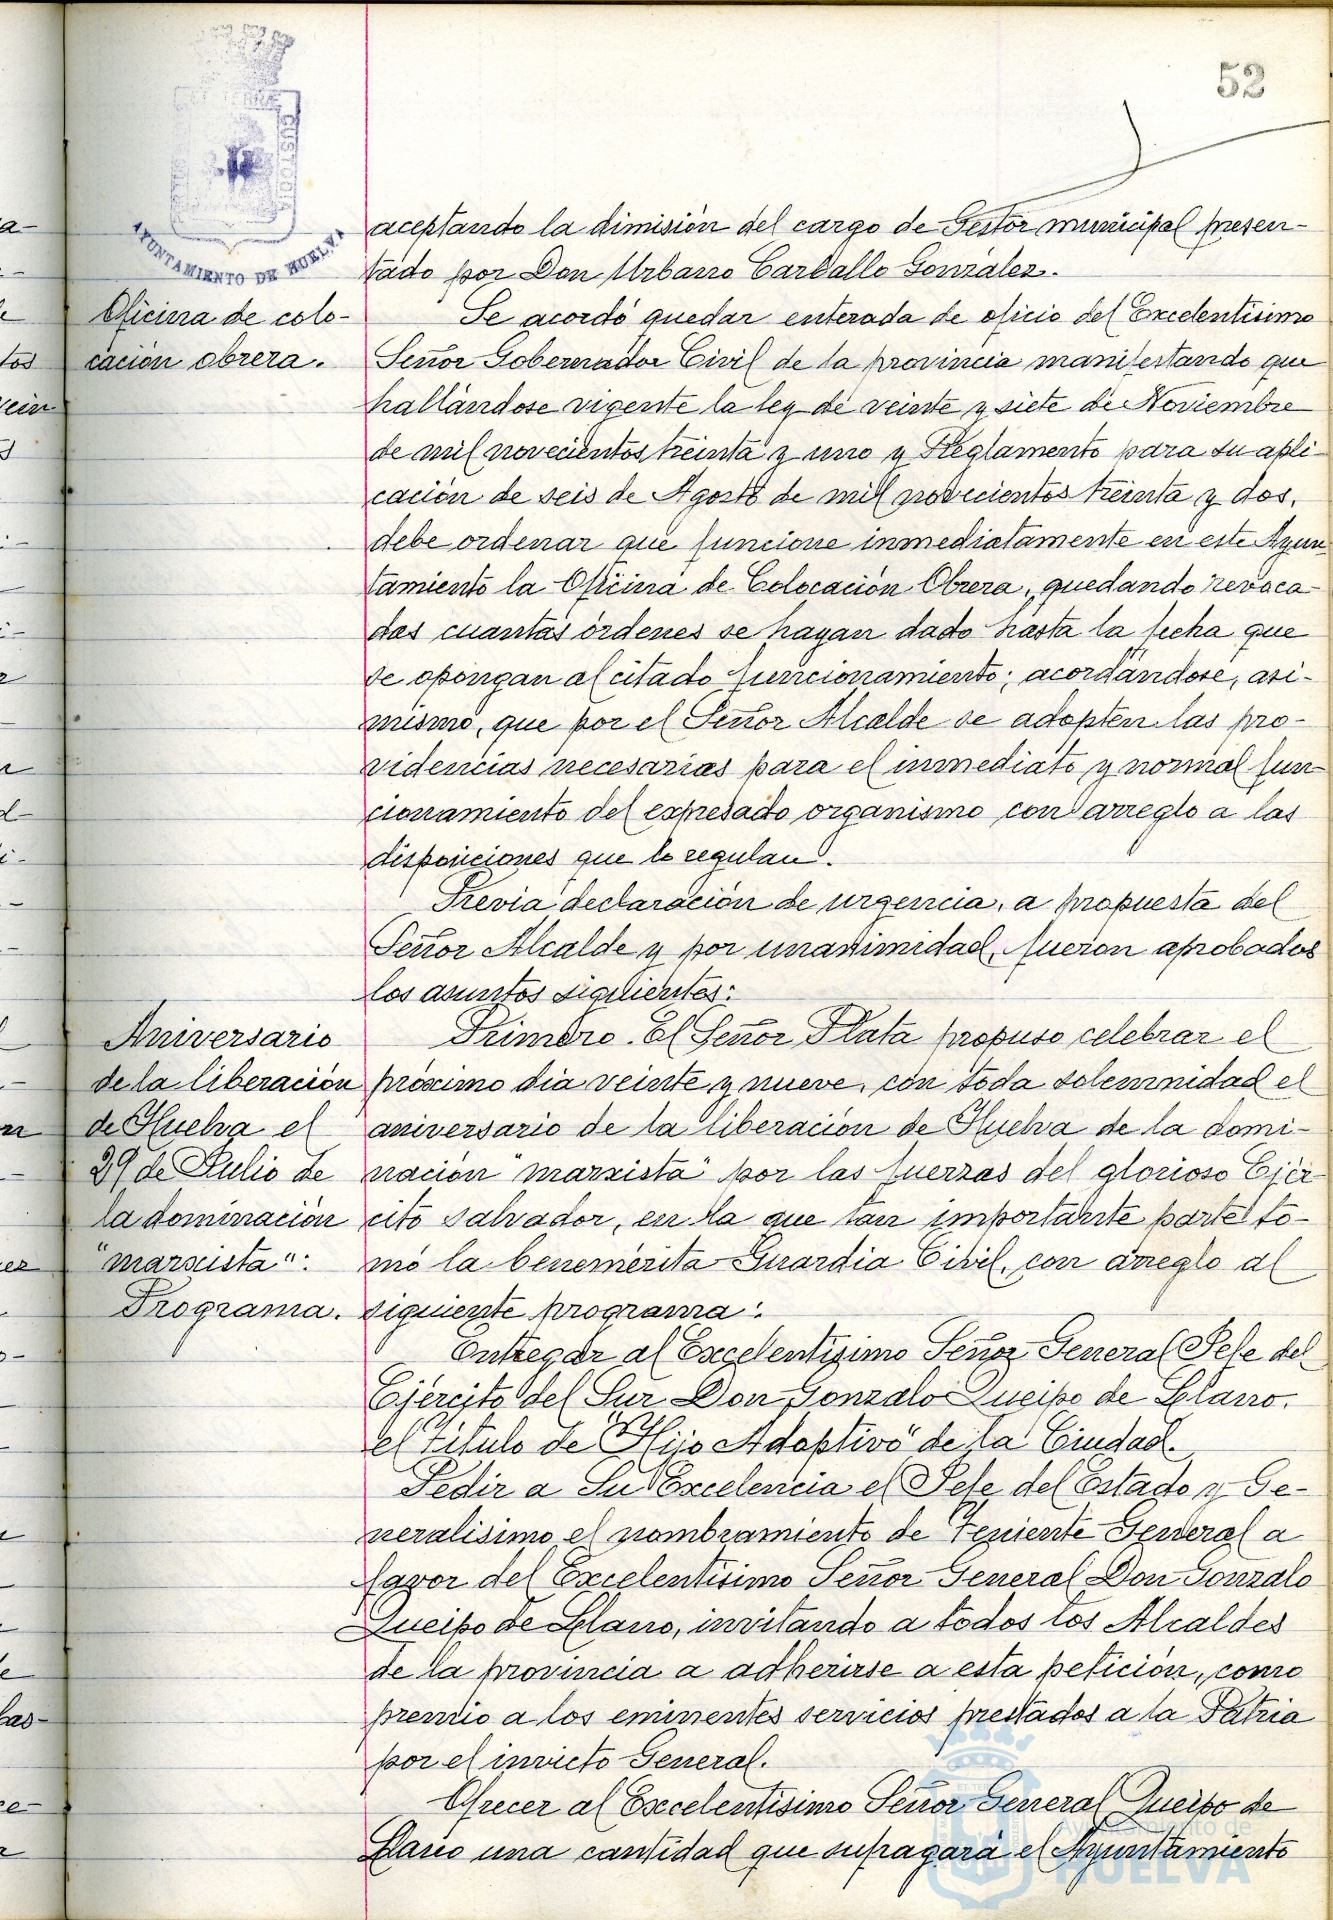 52
AYUNTAMIENTO DE HUELVA
CUSTODIA
aceptando la dimisión del cargo de Gestor municipal presen-
tado por Don Urbano Carballo González.
Oficina de colo-
cación obrera.
Se acordó quedar enterada de oficio del Excelentísimo
Señor Gobernador Civil de la provincia manifestando que
hallándose vigente la ley de veinte y siete de Noviembre
de mil novecientos treinta y uno y Reglamento para su apli-
cación de seis de Agosto de mil novecientos treinta y dos,
debe ordenar que funcione inmediatamente en este Ayun-
tamiento la Oficina de Colocación Obrera, quedando revoca-
das cuantas órdenes se hayan dado hasta la fecha que
se opongan al citado funcionamiento; acordándose, asi-
mismo, que por el Señor Alcalde se adopten las pro-
videncias necesarias para el inmediato y normal fun-
cionamiento del expresado organismo con arreglo a las
disposiciones que lo regulan.
Previa declaración de urgencia, a propuesta del
Señor Alcalde y por unanimidad, fueron aprobados
los asuntos siguientes:
Aniversario
de la liberación
de Huelva el
29 de Julio de
la dominación
"marxista":
Programa.
Primero. El Señor Plata propuso celebrar el
próximo dia veinte y nueve, con toda solemnidad el
aniversario de la liberación de Huelva de la domi-
nación "marxista" por las fuerzas del glorioso Ejér-
cito salvador, en la que tan importante parte to-
mó la benemérita Guardia Civil, con arreglo al
siguiente programa:
Entregar al Excelentísimo Señor General Jefe del
Ejército del Sur Don Gonzalo Queipo de Llano,
el Título de "Hijo Adoptivo" de la Ciudad.
Pedir a Su Excelencia el Jefe del Estado y Ge-
neralísimo el nombramiento de Teniente General a
favor del Excelentísimo Señor General Don Gonzalo
Queipo de Llano, invitando a todos los Alcaldes
de la provincia a adherirse a esta petición, como
premio a los eminentes servicios prestados a la Patria
por el invicto General.
Ofrecer al Excelentísimo Señor General Queipo de
Llano una cantidad que sufragará el Ayuntamiento
Ayuntamiento de
HUELVA